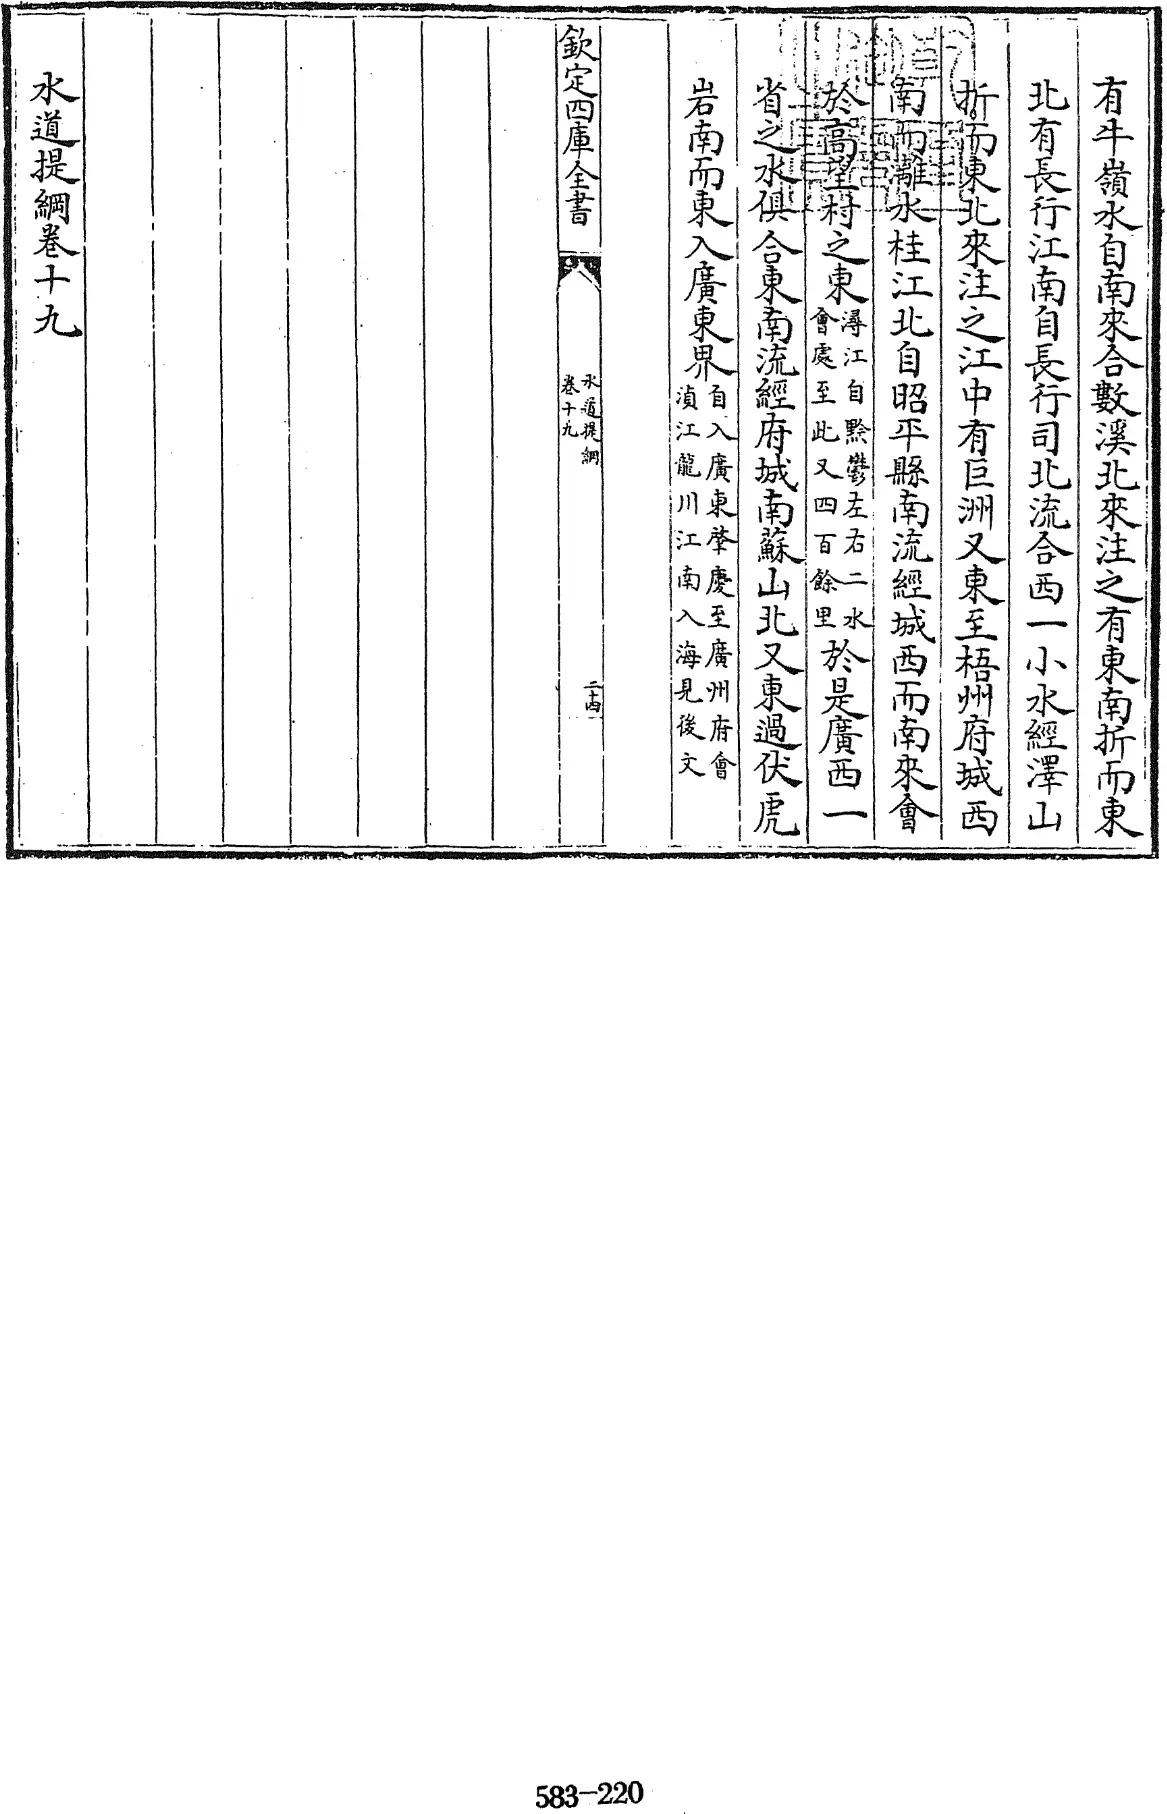 有牛嶺水自南來合數溪北來注之有東南折而東
北有長行江南自長行司北流合西一小水經澤山
折而東北來注之江中有巨洲又東至梧州府城西
南而灕水桂江北自昭平縣南流經城西而南來會
於高望村之東潯江自黔鬱左右二水會處至此又四百餘里於是廣西一
省之水俱合東南流經府城南蘇山北又東過伏虎
岩南而東入廣東界自入廣東肇慶至廣州府會湞江龍川江南入海見後文
欽定四庫全書
水道提綱
卷十九
二十四
水道提綱卷十九
583-220